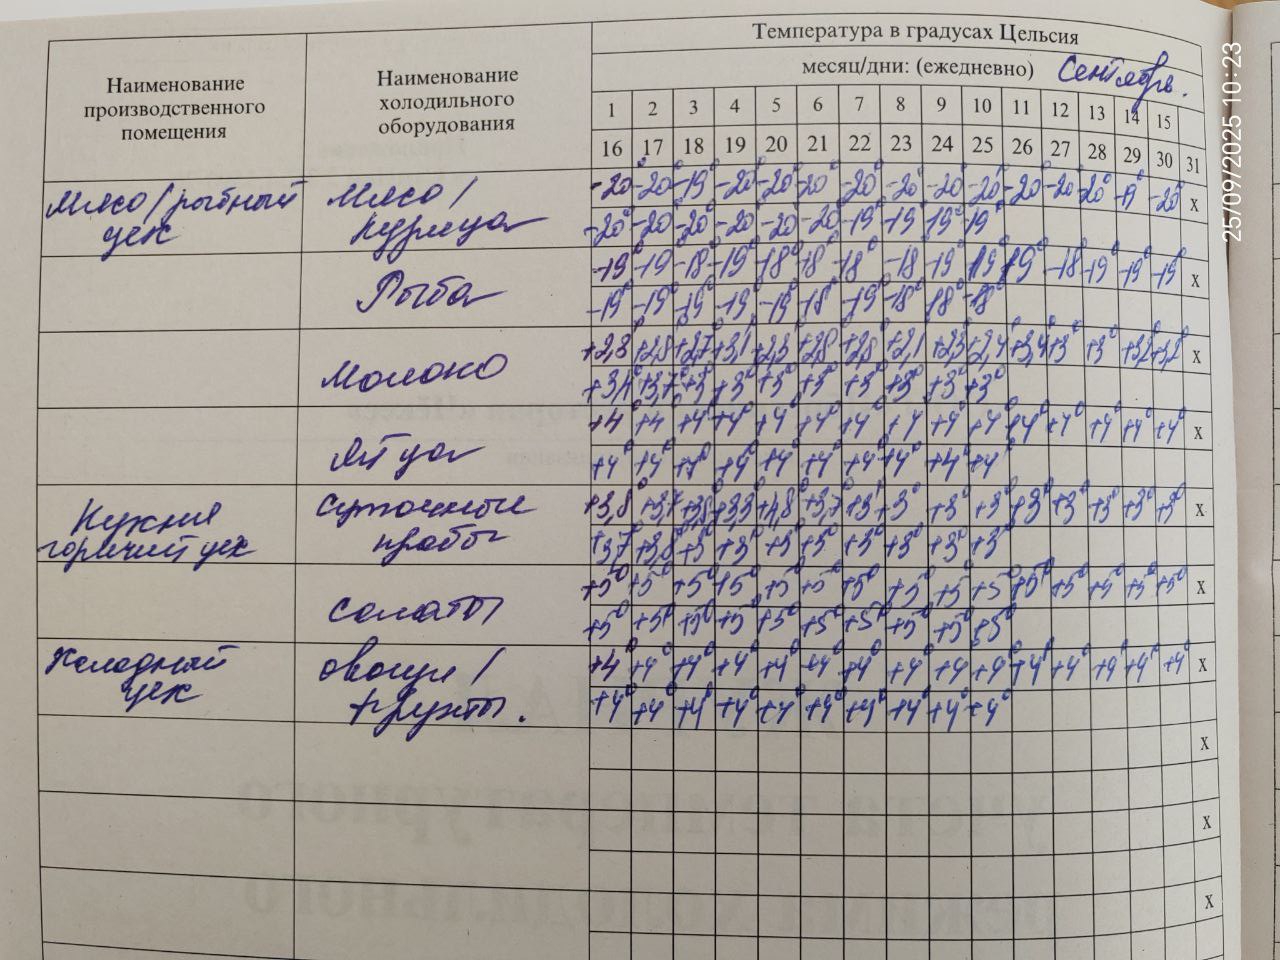 Температура в градусах Цельсия
месяц/дни: (ежедневно) Сентябрь.
Наименование
производственного
помещения
Наименование
холодильного
оборудования
1 2 3 4 5 6 7 8 9 10 11 12 13 14 15
16 17 18 19 20 21 22 23 24 25 26 27 28 29 30 31
Мясо/рыбный
цех
Мясо/
курица
-20° -20° -19° -20° -20° -20° -20° -20° -20° -20° -20° -20° -20° -19° -20° х
-20° -20 -20° -20° -20 -20 -19° -19 19° -19°
Рыба
-19° -19 -18 -19 18° 18° 18° -18 -19° 19° 19° -18 -19° -19° -19° х
-19° -19° -19 -19° -19 -18° -19° -18° 18° -18°
Молоко
+2,8 +2,8 +2,7 +3,1 +2,3 +2,8 +2,8 +2,1 +2,3 +2,4 +3,4 +3° +3° +3,2 +3,2° х
+3,4° +3,7° +3° +3° +3° +3° +3° +3° +3° +3°
Яйца
+4° +4 +4 +4° +4° +4° +4° +4 +4° +4 +4° +4° +4° +4° +4° х
+4° +4° +4° +4° +4° +4° +4° +4° +4° +4°
Кухня
горячий цех
Суточные
пробы
+3,8 +3,7 +3,8 +3,3 +4,8 +3,7 +3° +3° +3° +3° +3° +3° +3° +3° +3° х
+3,7° +3,8° +3° +3° +3° +3° +3° +3° +3° +3°
салаты
+5° +5° +5° +5° +5° +5° +5° +5 +5° +5° +5° +5° +5° +5° +5° х
+5° +5° +5° +5° +5° +5° +5° +5° +5° +5°
Холодный
цех
овощи/
фрукты.
+4° +4° +4° +4° +4° +4° +4° +4° +4 +4° +4° +4° +4° +4° +4° х
+4° +4° +4° +4° +4° +4° +4° +4° +4° +4°
х
х
х
25/09/2025 10:23